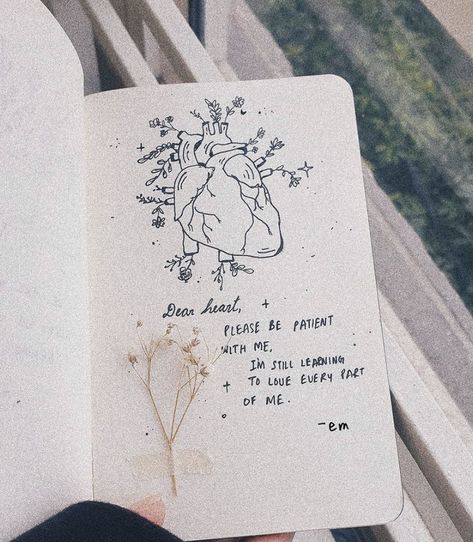 Dear heart,
PLEASE BE PATIENT
WITH ME,
I'M STILL LEARNING
TO LOVE EVERY PART
OF ME.
-em